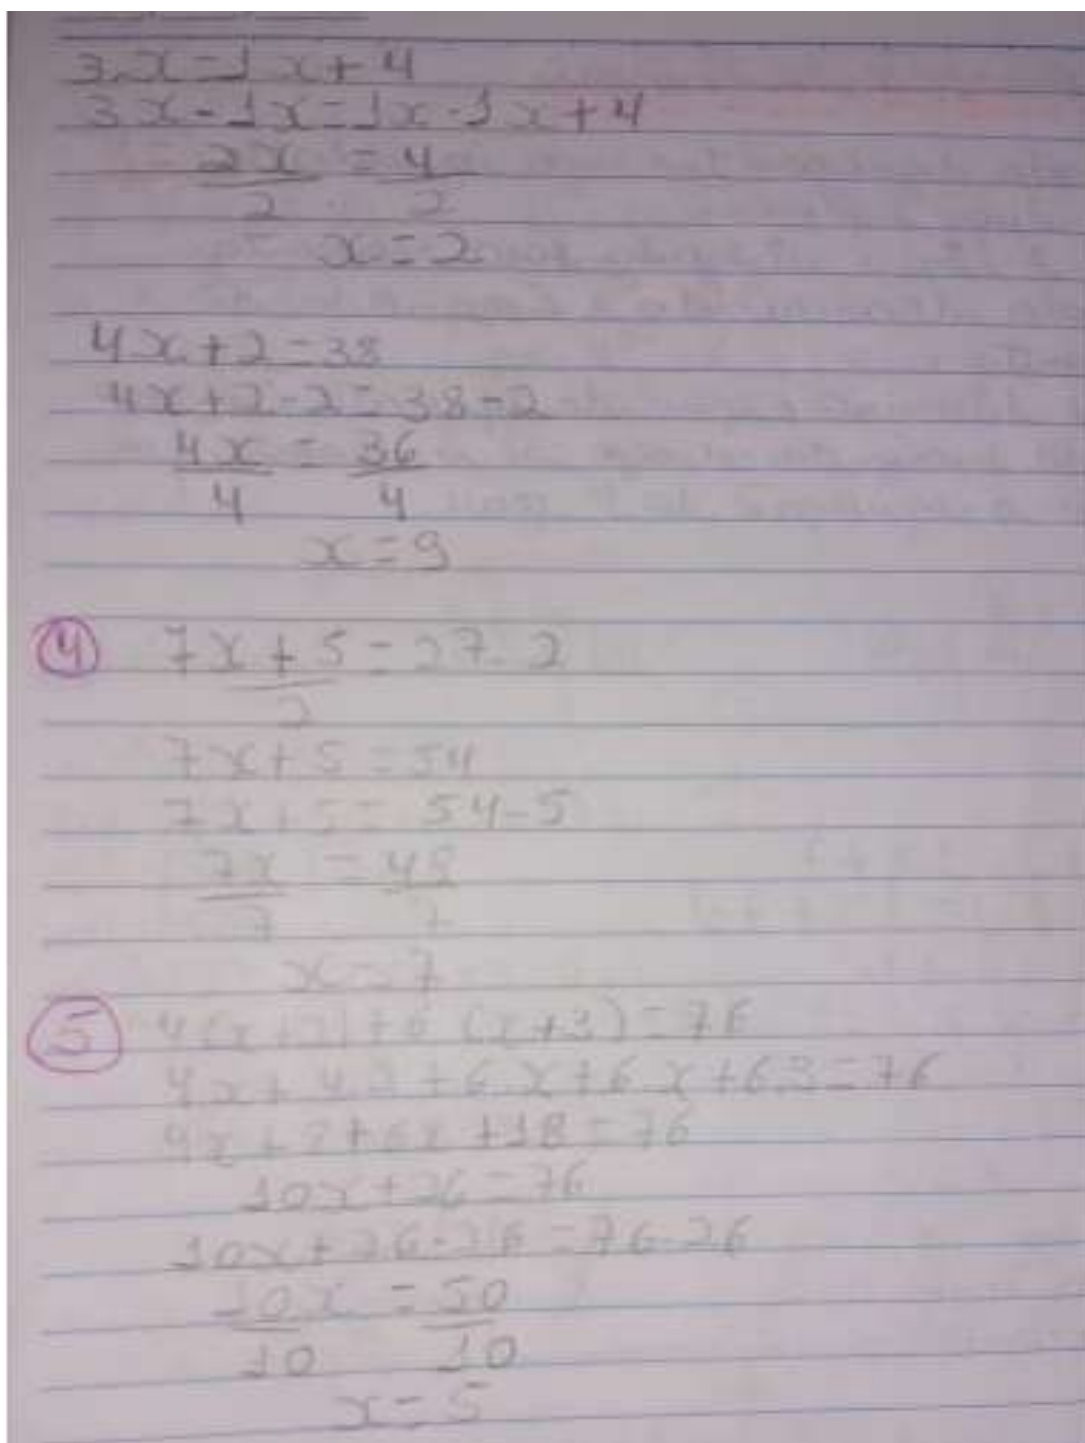 3x=1x+4
3x-1x=1x-1x+4
2x = 4
2 2
x=2
4x+2=38
4x+2-2=38-2
4x = 36
4 4
x=9
4 7x+5=27.2
2
7x+5=54
7x+5= 54-5
7x =48
7 7
x=7
5 4(x+2)+6(x+3)=76
4x+4.2+6x+6x+6.3=76
4x+8+6x+18=76
10x+26=76
10x+26-26=76-26
10x = 50
10 10
x=5